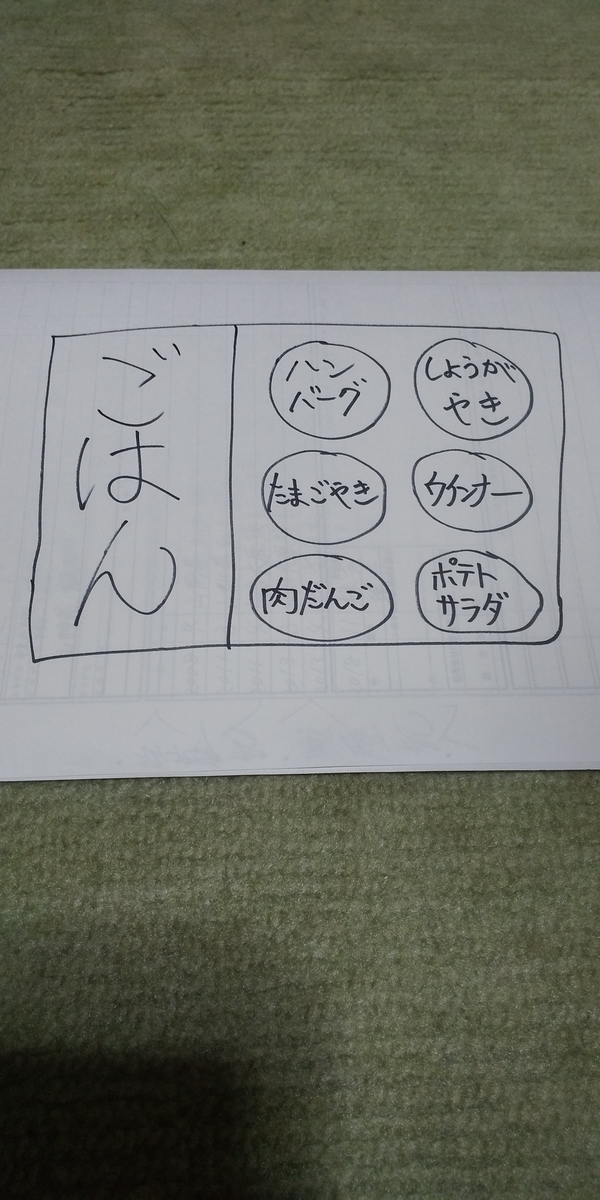 ごはん
ハン
バーグ
しょうが
やき
たまごやき
ウインナー
肉だんご
ポテト
サラダ